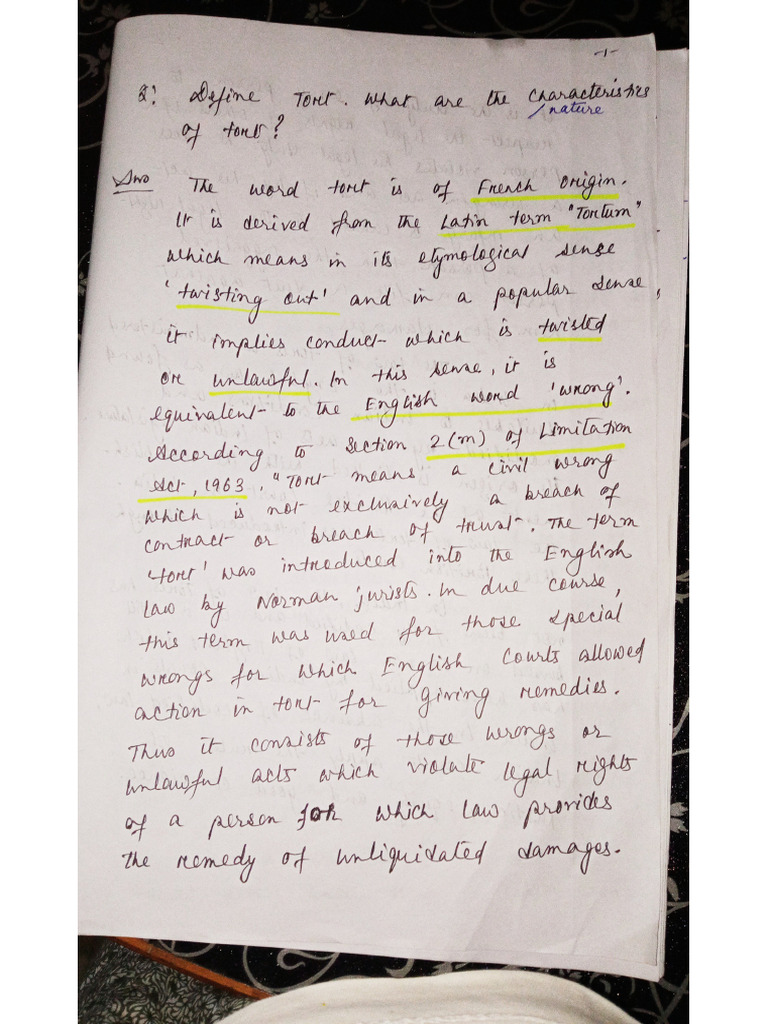 -1-
Q: Define Tort. What are the characteristics
/nature
of tort?
Ans The word tort is of French Origin.
It is derived from the Latin term "Tortum"
which means in its etymological sense
'twisting out' and in a popular sense,
it implies conduct which is twisted
or unlawful. In this sense, it is
equivalent to the English word 'wrong'.
According to Section 2(m) of Limitation
Act, 1963. "Tort means a civil wrong
which is not exclusively a breach of
contract or breach of trust. The term
'tort' was introduced into the English
law by Norman jurists. In due course,
this term was used for those special
wrongs for which English Courts allowed
action in tort for giving remedies.
Thus it consists of those wrongs or
unlawful acts which violate legal rights
of a person for which law provides
the remedy of unliquidated damages.